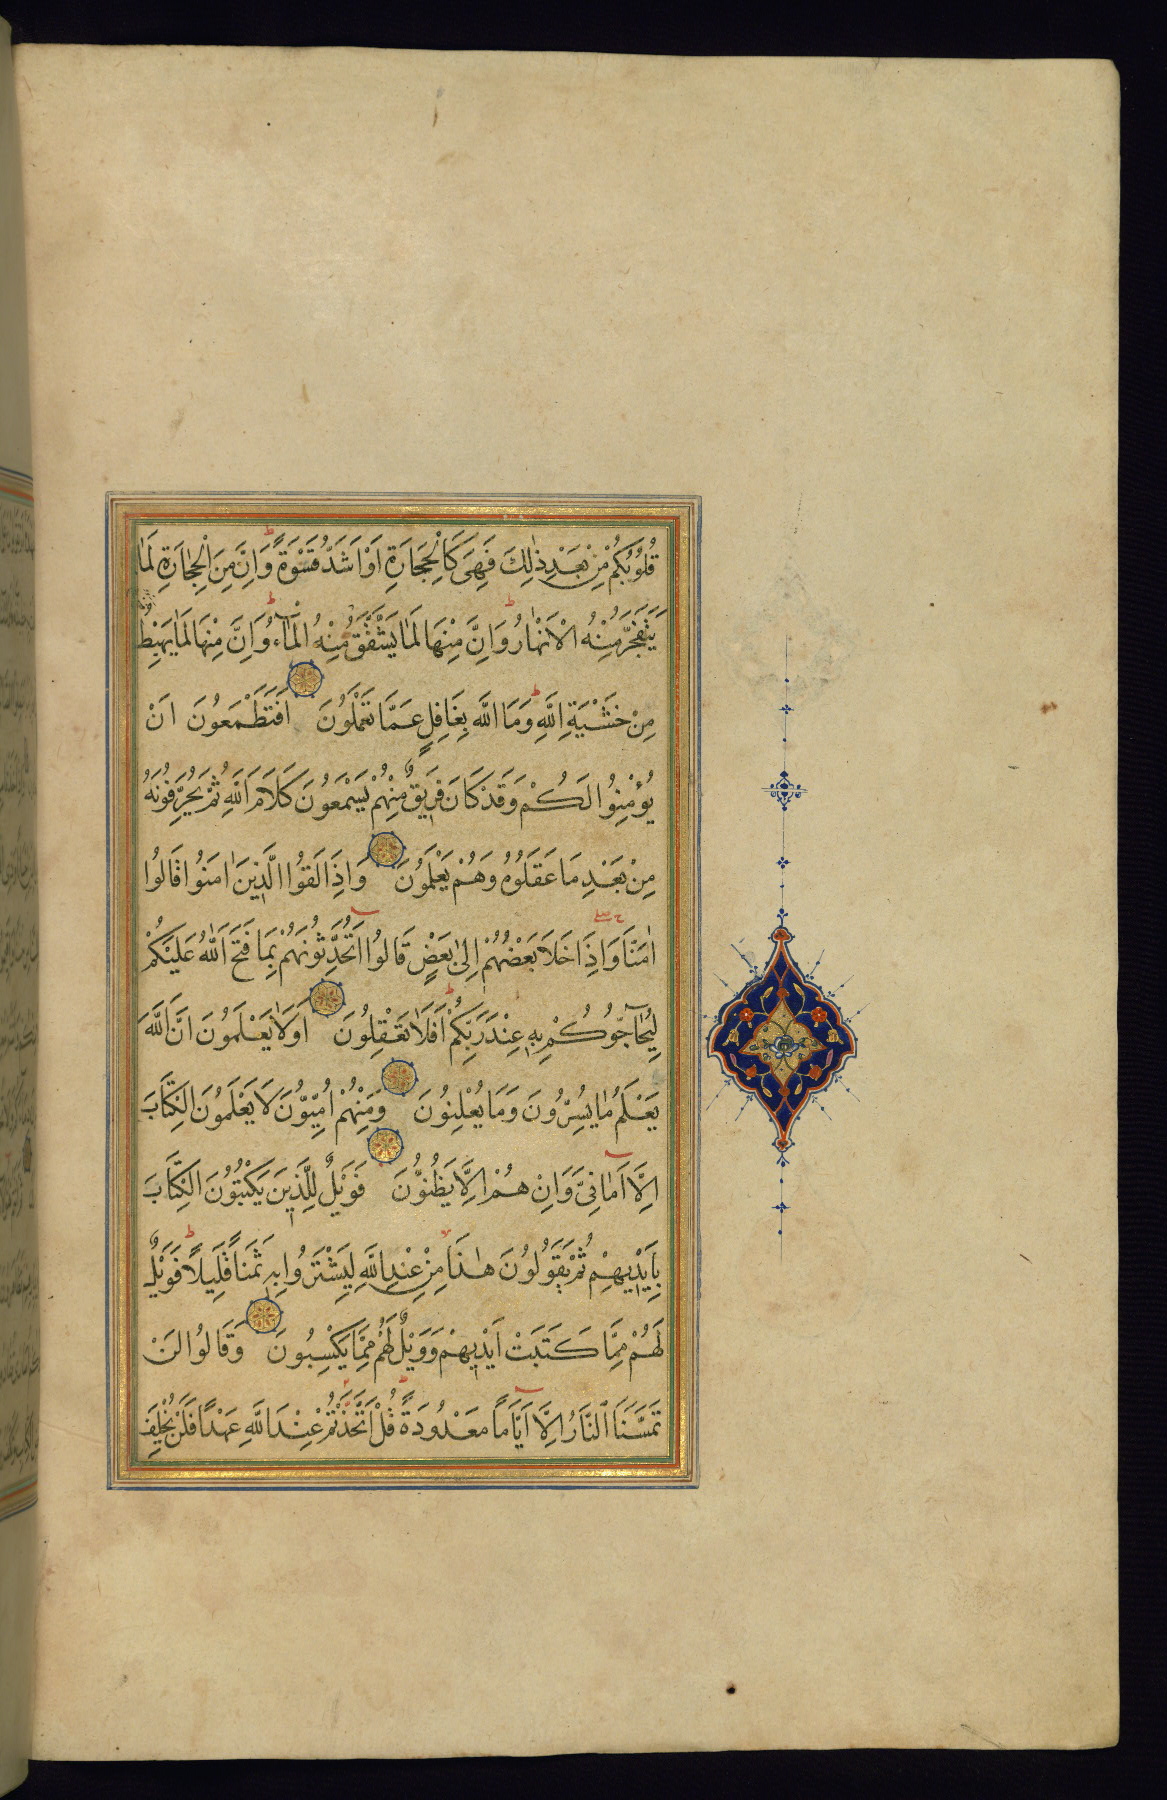 قُلُوبُكُمْ مِنْ بَعْدِ ذٰلِكَ فَهِىَ كَالْحِجَارَةِ اَوْ اَشَدُّ قَسْوَةً وَاِنَّ مِنَ الْحِجَارَةِ لَمَا
يَتَفَجَّرُ مِنْهُ الْاَنْهَارُ وَاِنَّ مِنْهَا لَمَا يَشَّقَّقُ فَيَخْرُجُ مِنْهُ الْمَآءُ وَاِنَّ مِنْهَا لَمَا يَهْبِطُ
مِنْ خَشْيَةِ اللَّهِ وَمَا اللَّهُ بِغَافِلٍ عَمَّا تَعْمَلُونَ اَفَتَطْمَعُونَ اَنْ
يُؤْمِنُوا لَكُمْ وَقَدْ كَانَ فَرِيقٌ مِنْهُمْ يَسْمَعُونَ كَلَامَ اللَّهِ ثُمَّ يُحَرِّفُونَهُ
مِنْ بَعْدِ مَا عَقَلُوهُ وَهُمْ يَعْلَمُونَ وَاِذَا لَقُوا الَّذِينَ اٰمَنُوا قَالُوا
اٰمَنَّا وَاِذَا خَلَا بَعْضُهُمْ اِلٰى بَعْضٍ قَالُوا اَتُحَدِّثُونَهُمْ بِمَا فَتَحَ اللَّهُ عَلَيْكُمْ
لِيُحَآجُّوكُمْ بِهِ عِنْدَ رَبِّكُمْ اَفَلَا تَعْقِلُونَ اَوَلَا يَعْلَمُونَ اَنَّ اللَّهَ
يَعْلَمُ مَا يُسِرُّونَ وَمَا يُعْلِنُونَ وَمِنْهُمْ اُمِّيُّونَ لَا يَعْلَمُونَ الْكِتَابَ
اِلَّا اَمَانِىَّ وَاِنْ هُمْ اِلَّا يَظُنُّونَ فَوَيْلٌ لِلَّذِينَ يَكْتُبُونَ الْكِتَابَ
بِاَيْدِيهِمْ ثُمَّ يَقُولُونَ هٰذَا مِنْ عِنْدِ اللَّهِ لِيَشْتَرُوا بِهِ ثَمَنًا قَلِيلًا فَوَيْلٌ
لَهُمْ مِمَّا كَتَبَتْ اَيْدِيهِمْ وَوَيْلٌ لَهُمْ مِمَّا يَكْسِبُونَ وَقَالُوا لَنْ
تَمَسَّنَا النَّارُ اِلَّا اَيَّامًا مَعْدُودَةً قُلْ اَتَّخَذْتُمْ عِنْدَ اللَّهِ عَهْدًا فَلَنْ يُخْلِفَ